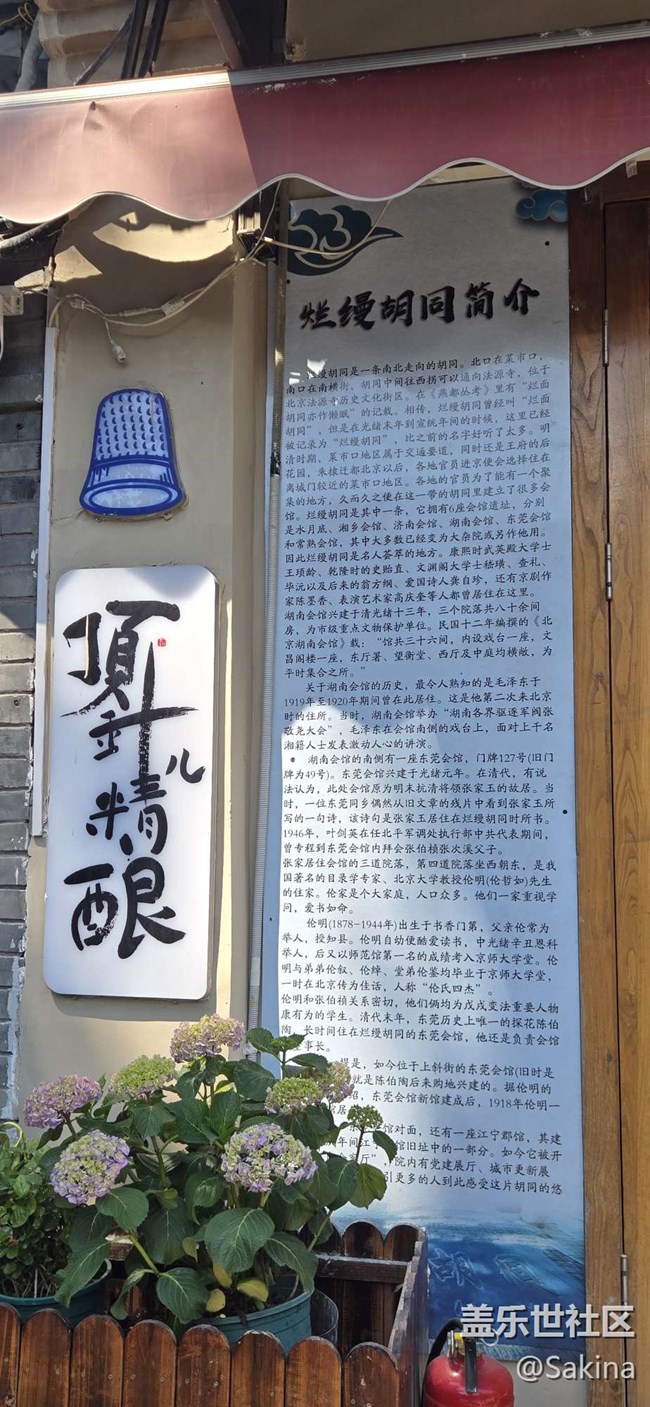 頂針儿精酿
烂缦胡同简介
缦胡同是一条南北走向的胡同。北口在菜市口，
南口在南横街，胡同中间往西拐可以通向法源寺，位于
北京法源寺历史文化街区。在《燕都丛考》里有“烂面
胡同亦作懒眠”的记载。相传，烂缦胡同曾经叫“烂面
胡同”，但是在光绪末年到宣统年间的时候，这里已经
被记录为“烂缦胡同”，比之前的名字好听了太多。明
清时期，菜市口地区属于交通要道，同时还是王府的后
花园，朱棣迁都北京以后，各地官员进京便会选择住在
离城门较近的菜市口地区。各地的官员为了能有一个聚
集的地方，久而久之便在这一带的胡同里建立了很多会
馆。烂缦胡同是其中一条，它拥有6座会馆遗址，分别
是水月庭、湘乡会馆、济南会馆、湖南会馆、东莞会馆
和常熟会馆，其中大多数已经变为大杂院或另作他用。
因此烂缦胡同是名人荟萃的地方。康熙时武英殿大学士
王顼龄、乾隆时的史贻直、文渊阁大学士嵇璜、查礼、
毕沅以及后来的翁方纲、爱国诗人龚自珍，还有京剧作
家陈墨香、表演艺术家高庆奎等人都曾居住在这里。
湖南会馆兴建于清光绪十三年，三个院落共八十余间
房，为市级重点文物保护单位。民国十二年编撰的《北
京湖南会馆》载：“馆共三十六间，内设戏台一座，文
昌阁楼一座，东厅署、望衡堂、西厅及中庭均横敞，为
平时集合之所。”
关于湖南会馆的历史，最令人熟知的是毛泽东于
1919年至1920年期间曾在此居住。这是他第二次来北京
时的住所。当时，湖南会馆举办“湖南各界驱逐军阀张
敬尧大会”，毛泽东在会馆南侧的戏台上，面对上千名
湘籍人士发表激动人心的讲演。
湖南会馆的南侧有一座东莞会馆，门牌127号(旧门
牌为49号)。东莞会馆兴建于光绪元年。在清代，有说
法认为，此处会馆原为明末抗清将领张家玉的故居。当
时，一位东莞同乡偶然从旧文章的残片中看到张家玉所
写的一句诗，该诗句是张家玉居住在烂缦胡同时所书。
1946年，叶剑英在任北平军调处执行部中共代表期间，
曾专程到东莞会馆内拜会张伯桢张次溪父子。
张家居住会馆的三道院落，第四道院落坐西朝东，是我
国著名的目录学专家、北京大学教授伦明(伦哲如)先生
的住家。伦家是个大家庭，人口众多。他们一家重视学
问，爱书如命。
伦明(1878-1944年)出生于书香门第，父亲伦常为
举人，授知县。伦明自幼便酷爱读书，中光绪辛丑恩科
举人，后又以师范馆第一名的成绩考入京师大学堂。伦
明与弟弟伦叙、伦绰、堂弟伦鉴均毕业于京师大学堂，
一时在北京传为佳话，人称“伦氏四杰”。
伦明和张伯桢关系密切，他们俩均为戊戌变法重要人物
康有为的学生。清代末年，东莞历史上唯一的探花陈伯
陶，长时间住在烂缦胡同的东莞会馆，他还是负责会馆
事长。
提是，如今位于上斜街的东莞会馆(旧时是
就是陈伯陶后来购地兴建的。据伦明的
绍，东莞会馆新馆建成后，1918年伦明一
居
馆对面，还有一座江宁郡馆，其建
年间江
馆旧址中的一部分。如今它被开
厅”，院内有党建展厅、城市更新展
引更多的人到此感受这片胡同的悠
盖乐世社区
@Sakina